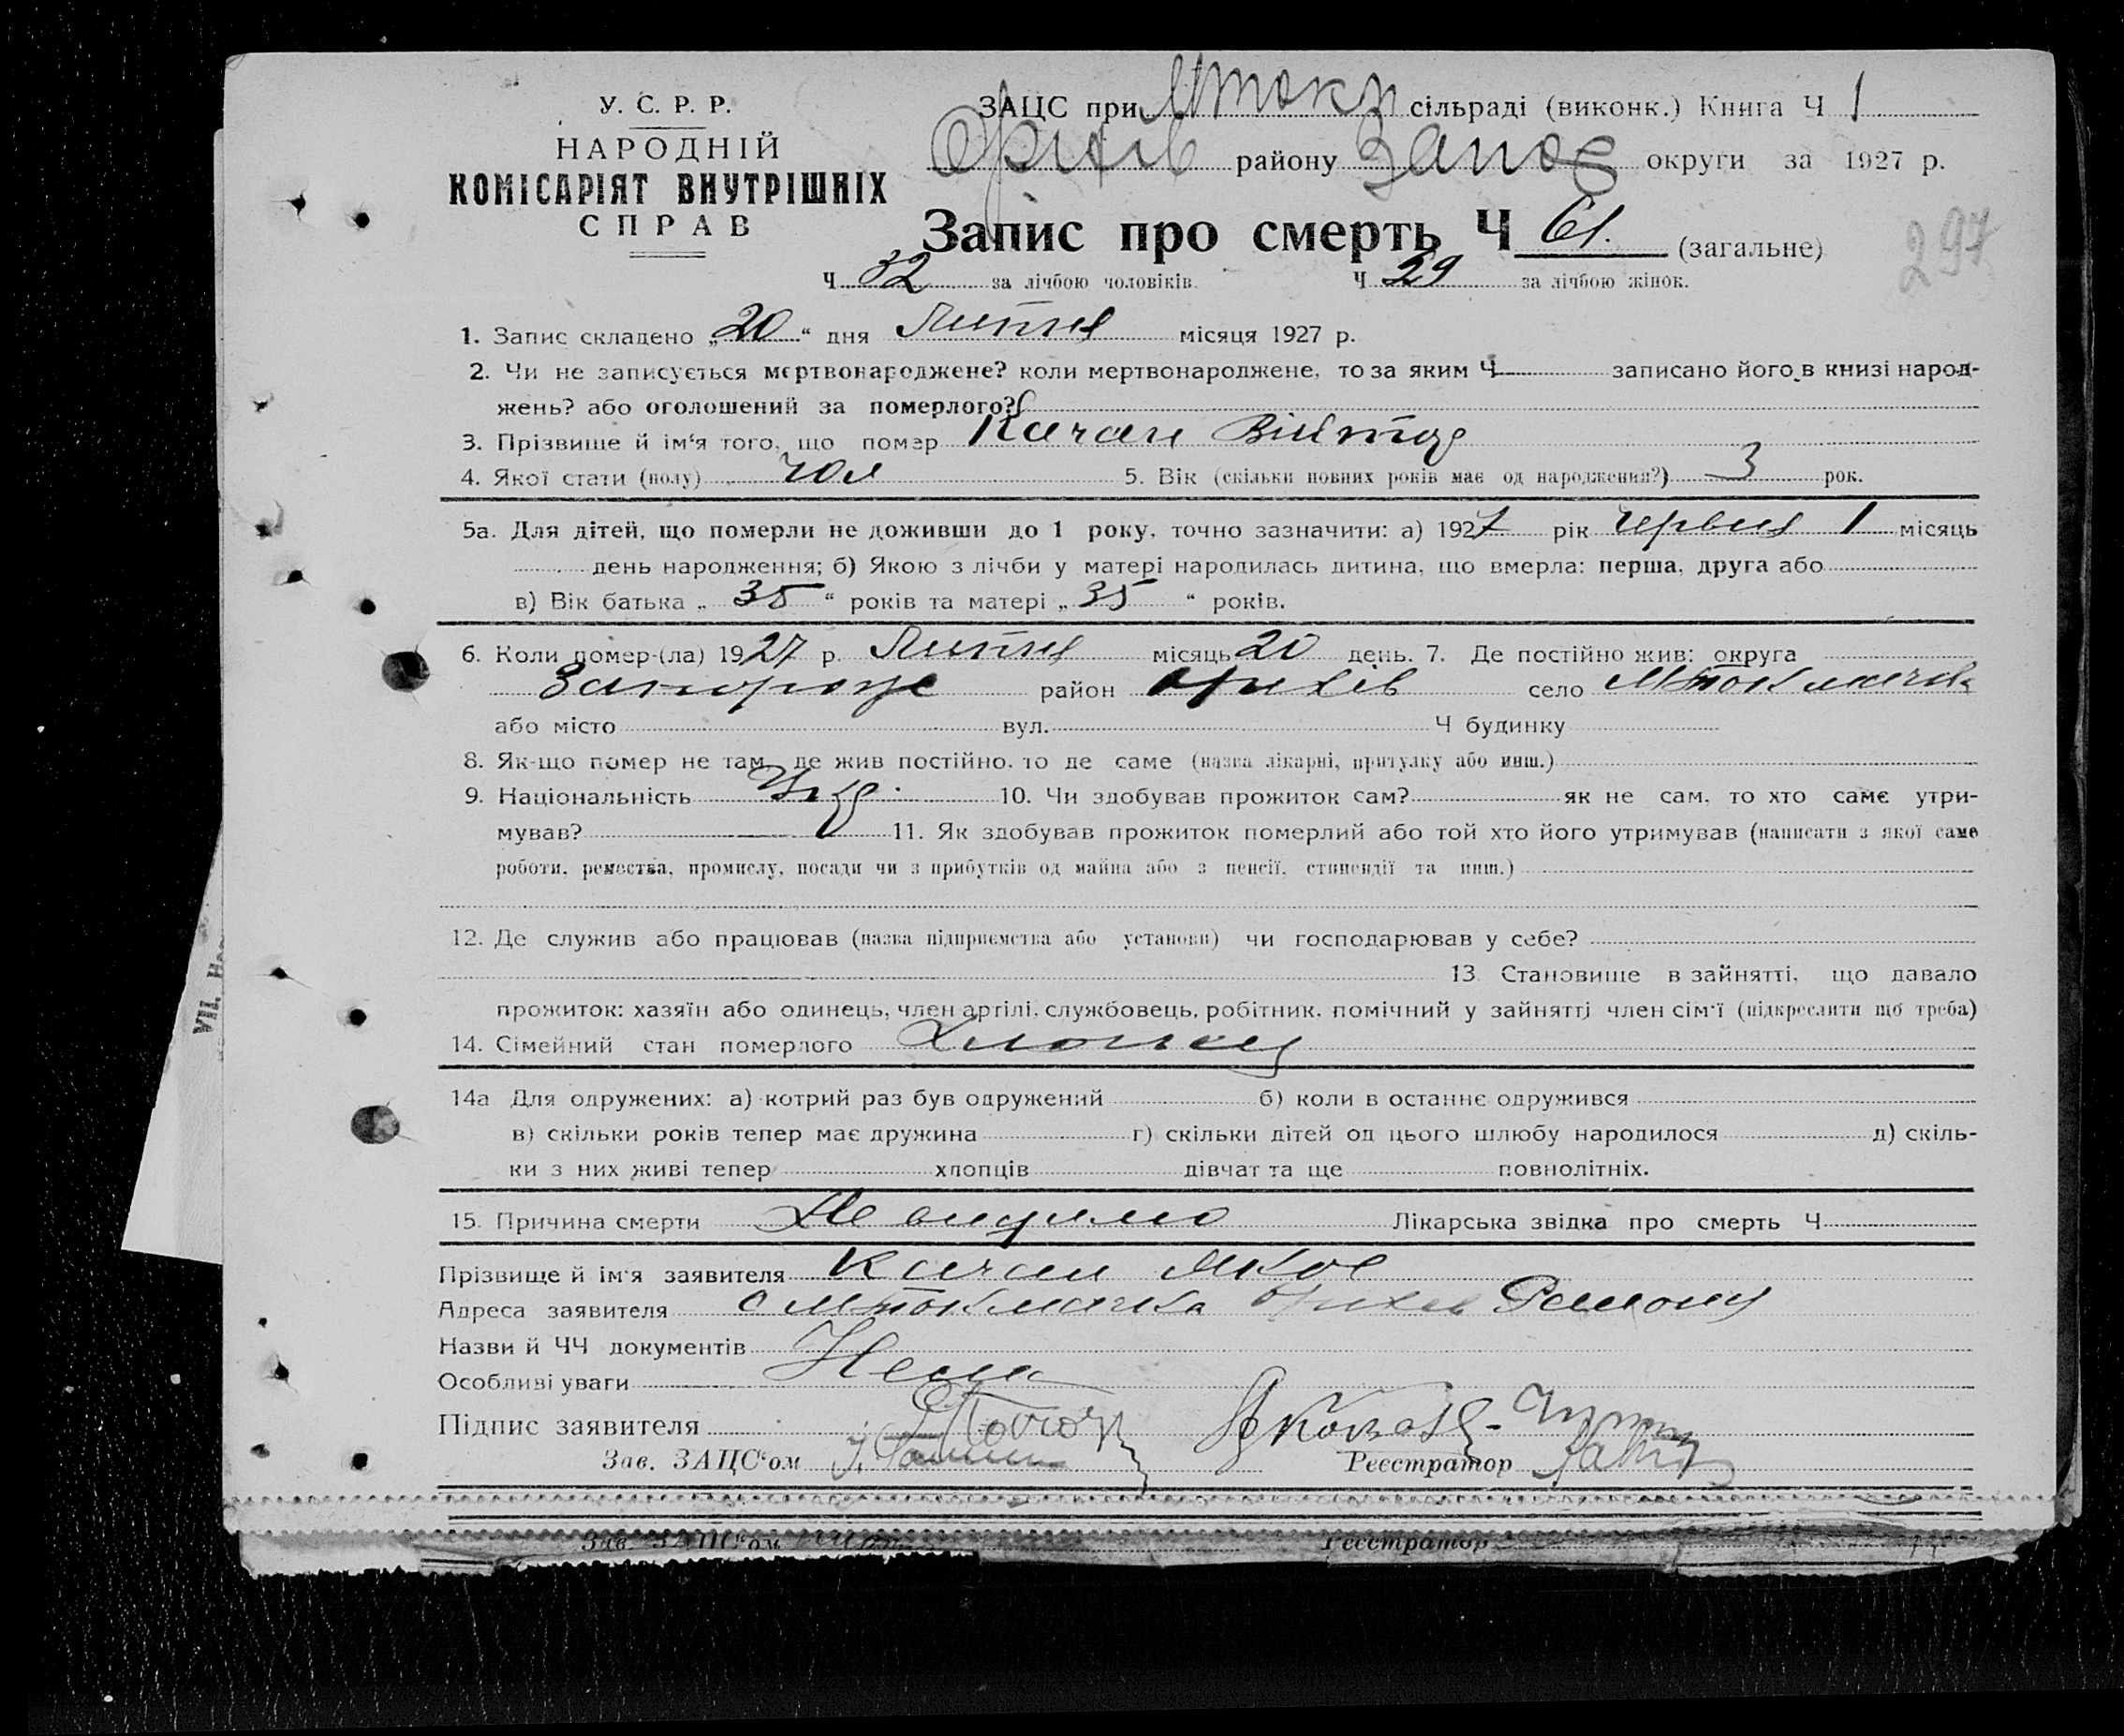 У. С. Р. Р.
НАРОДНІЙ
КОМІСАРІЯТ ВНУТРІШНІХ
СПРАВ
ЗАЦС при Мток сільраді (виконк.) Книга Ч 1
Оріхів району Запор округи за 1927 р.
Запис про смерть Ч 61. (загальне)
297
Ч 32 за лічбою чоловіків. Ч 29 за лічбою жінок.
1. Запис складено „20“ дня Липня місяця 1927 р.
2. Чи не записується мертвонароджене? коли мертвонароджене, то за яким Ч записано його в книзі народ-
жень? або оголошений за померлого?
3. Прізвище й ім'я того, що помер Качан
4. Якої стати (полу) чол 5. Вік (скільки повних років має од народження?) 3 рок.
5а. Для дітей, що померли не доживши до 1 року, точно зазначити: а) 1927 рік червня 1 місяць
день народження; б) Якою з лічби у матері народилась дитина, що вмерла: перша, друга або
в) Вік батька „35“ років та матері „35“ років.
6. Коли помер-(ла) 1927 р. Липня місяць 20 день. 7. Де постійно жив: округа
Запоріже район Оріхів село Мтокмачка
або місто вул. Ч будинку
8. Як-що помер не там, де жив постійно, то де саме (назва лікарні, притулку або инш.)
9. Національність Укр. 10. Чи здобував прожиток сам? як не сам, то хто саме утри-
мував? 11. Як здобував прожиток померлий або той хто його утримував (написати з якої саме
роботи, ремества, промислу, посади чи з прибутків од майна або з пенсії, стипендії та инш.)
12. Де служив або працював (назва підприємства або установи) чи господарював у себе?
13. Становище в зайнятті, що давало
прожиток: хазяїн або одинець, член артілі, службовець, робітник, помічний у зайнятті член сім'ї (підкреслити що треба)
14. Сімейний стан померлого Хлопец
14а Для одружених: а) котрий раз був одружений б) коли в останнє одружився
в) скільки років тепер має дружина г) скільки дітей од цього шлюбу народилося д) скіль-
ки з них живі тепер хлопців дівчат та ще повнолітніх.
15. Причина смерти Не видимо Лікарська звідка про смерть Ч
Прізвище й ім'я заявителя Качан Яков
Адреса заявителя с Мтокмачка Оріхів Району
Назви й ЧЧ документів Нема
Особливі уваги
Підпис заявителя
Зав. ЗАЦС'ом Реєстратор
Зав. ЗАЦС'ом Реєстратор
VII. На